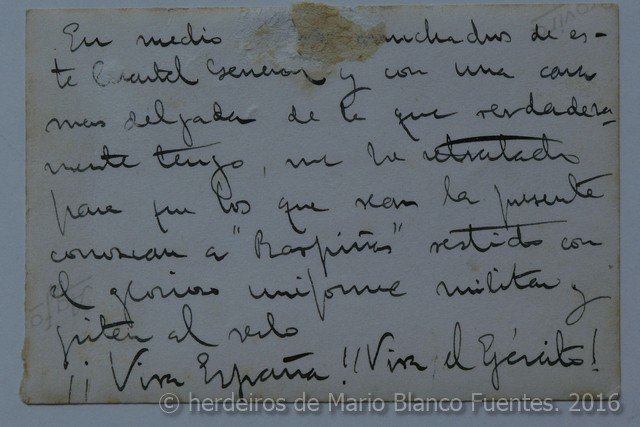 En medio muchachos de es-
te Cuartel General y con una cara
mas delgada de la que verdadera-
mente tengo, me he retratado
para que los que vean la presente
conozcan a "Raspiñas" vestido con
el glorioso uniforme militar y
griten al verlo
¡¡Viva España!! Viva el Ejército!
© herdeiros de Mario Blanco Fuentes. 2016